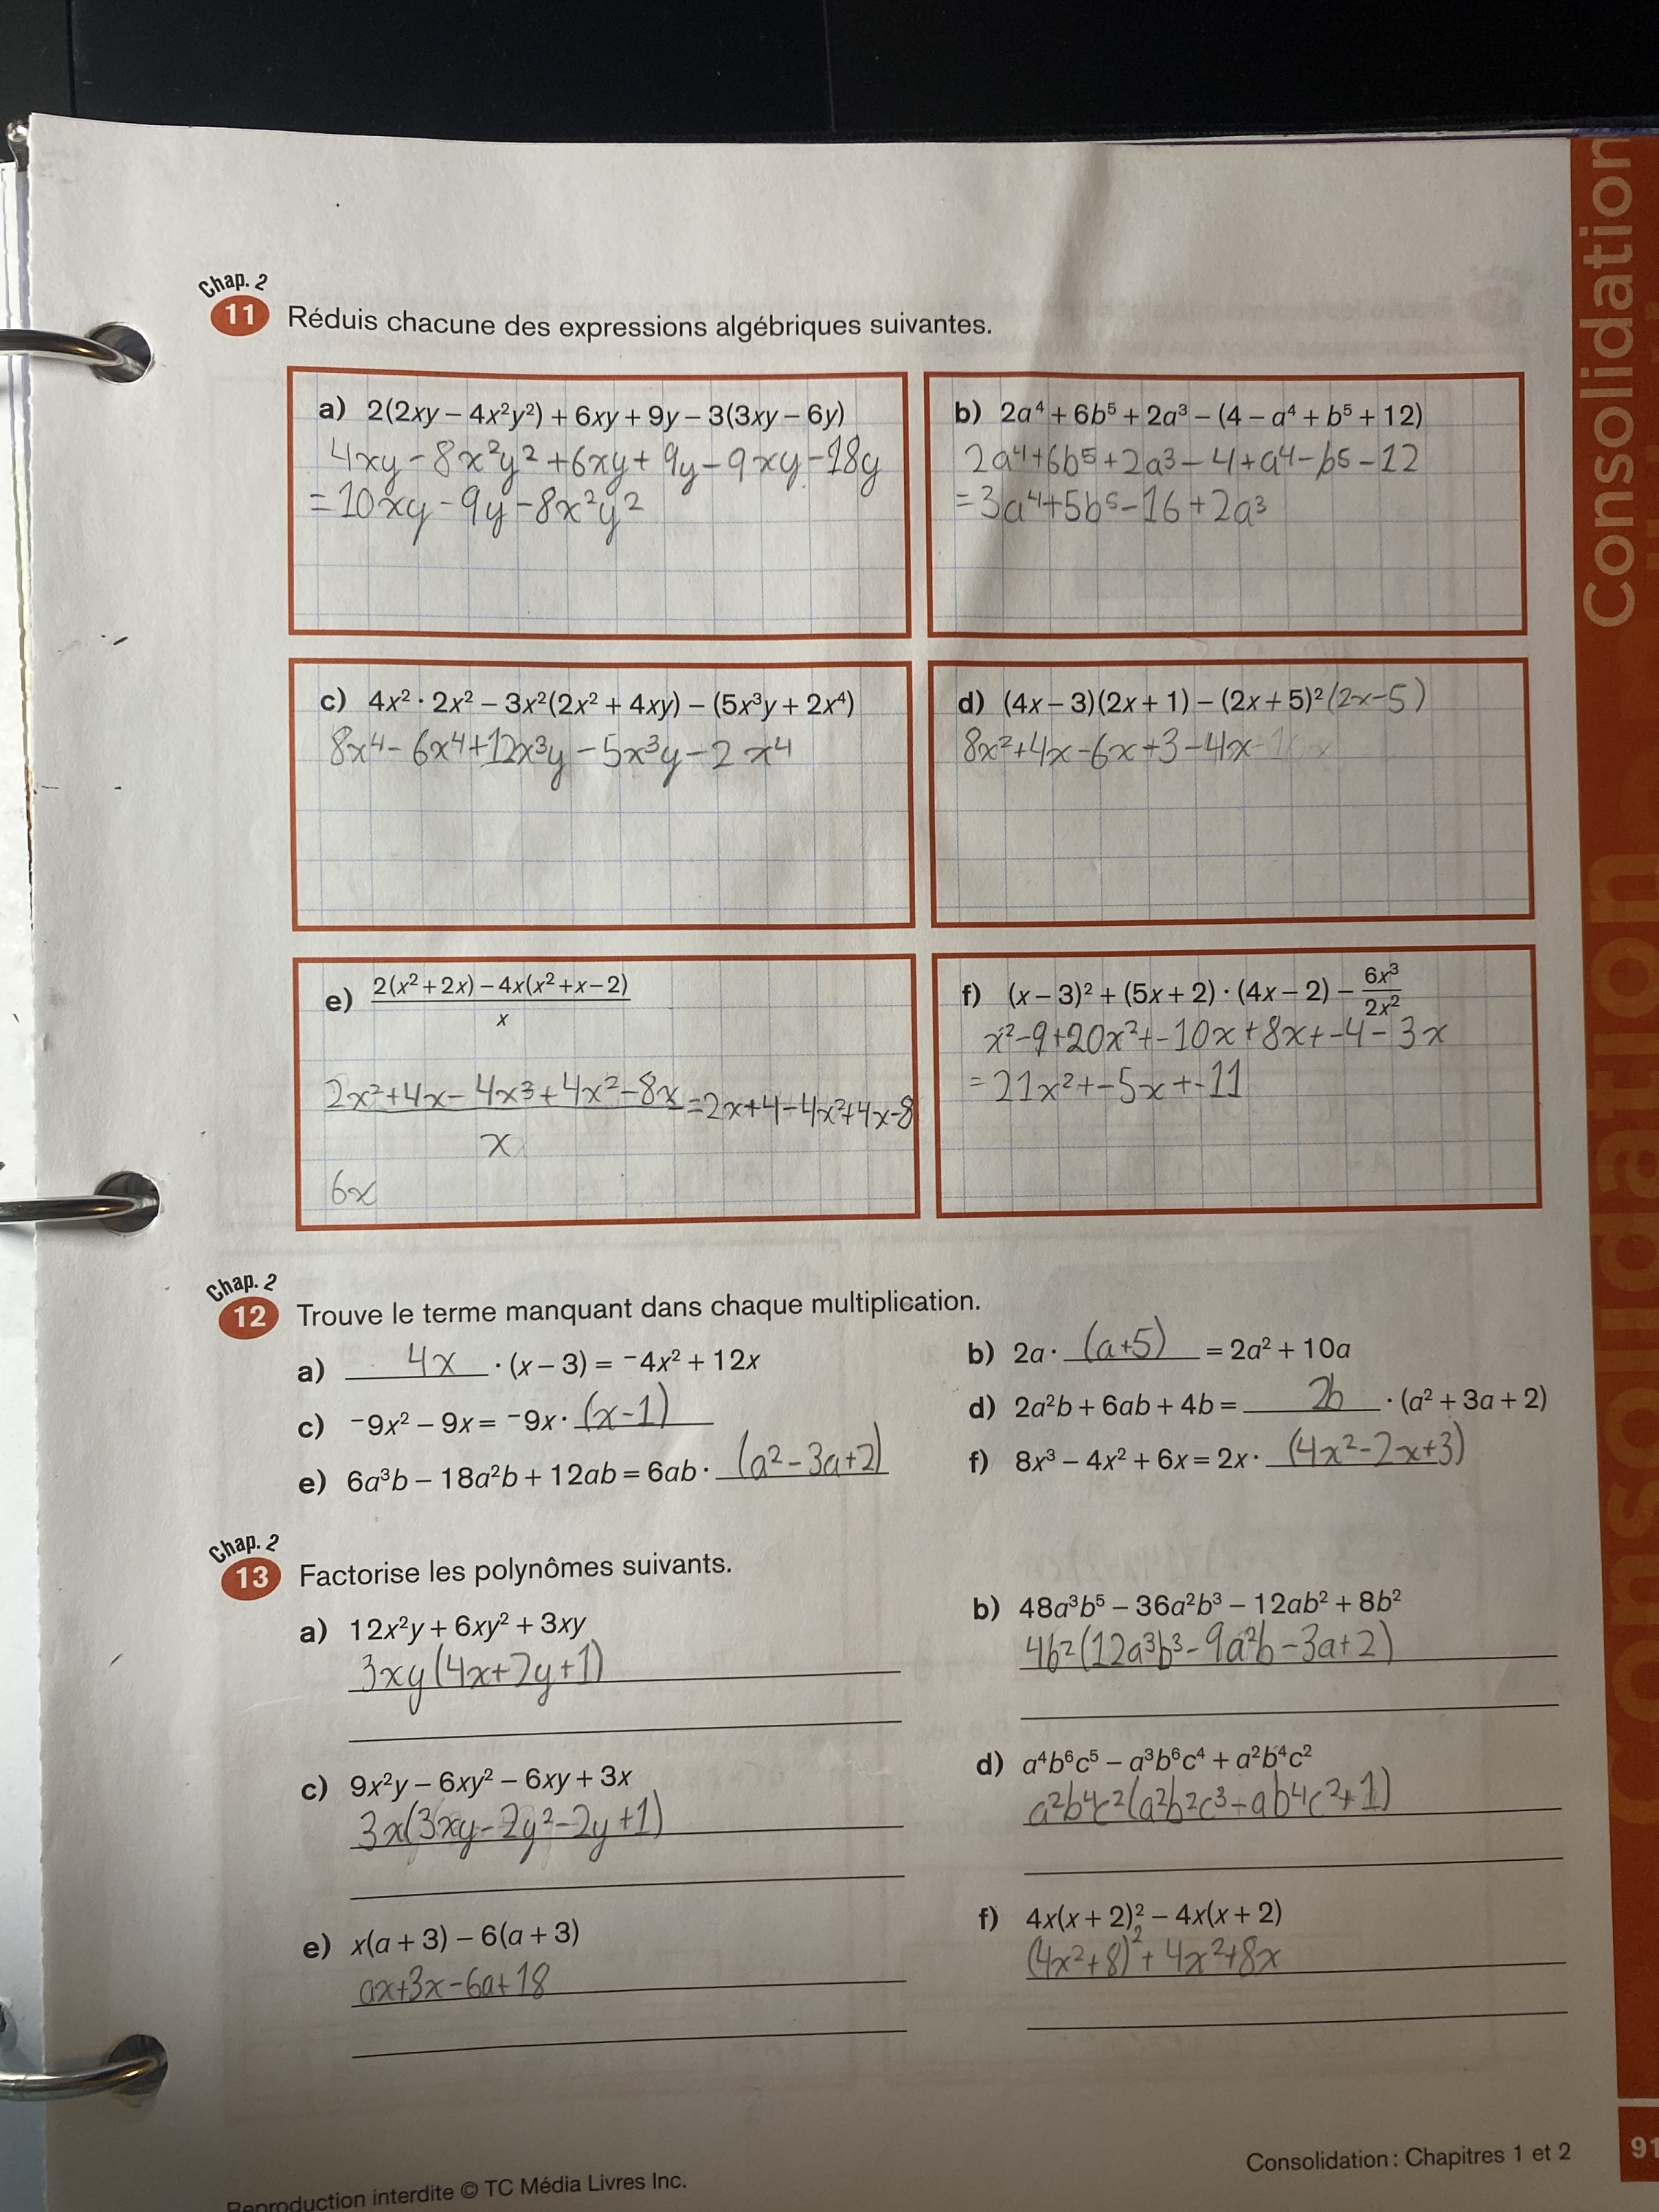 Consolidation
Chap. 2
11 Réduis chacune des expressions algébriques suivantes.
a) 2(2xy – 4x²y²) + 6xy + 9y – 3(3xy – 6y)
4xy – 8x²y² + 6xy + 9y – 9xy – 18y
= 10xy – 9y – 8x²y²
b) 2a⁴ + 6b⁵ + 2a³ – (4 – a⁴ + b⁵ + 12)
2a⁴+6b⁵+2a³ – 4+a⁴ – b5 – 12
= 3a⁴+5b⁵ – 16 + 2a³
c) 4x² · 2x² – 3x²(2x² + 4xy) – (5x³y + 2x⁴)
8x⁴ – 6x⁴+12x³y – 5x³y – 2x⁴
d) (4x – 3)(2x + 1) – (2x + 5)² (2x – 5)
8x²+4x – 6x+3 – 4x
e) 2(x² + 2x) – 4x(x² + x – 2)
x
2x²+4x – 4x³+4x² – 8x = 2x+4 – 4x²+4x – 8
x
6x
f) (x – 3)² + (5x + 2) · (4x – 2) – 6x³
2x²
x² – 9+20x²+ – 10x+8x+ – 4 – 3x
= 21x²+ – 5x+ – 11
Chap. 2
12 Trouve le terme manquant dans chaque multiplication.
a) 4x · (x – 3) = ⁻4x² + 12x
b) 2a · (a+5) = 2a² + 10a
c) ⁻9x² – 9x = ⁻9x · (x – 1)
d) 2a²b + 6ab + 4b = 2b · (a² + 3a + 2)
e) 6a³b – 18a²b + 12ab = 6ab · (a² – 3a+2)
f) 8x³ – 4x² + 6x = 2x · (4x² – 2x+3)
Chap. 2
13 Factorise les polynômes suivants.
a) 12x²y + 6xy² + 3xy
3xy(4x+2y+1)
b) 48a³b⁵ – 36a²b³ – 12ab² + 8b²
4b²(12a³b³ – 9a²b – 3a+2)
c) 9x²y – 6xy² – 6xy + 3x
3x(3xy – 2y² – 2y+1)
d) a⁴b⁶c⁵ – a³b⁶c⁴ + a²b⁴c²
a²b⁴c²(a²b²c³ – ab⁴c²+1)
e) x(a + 3) – 6(a + 3)
ax+3x – 6a+18
f) 4x(x + 2)² – 4x(x + 2)
(4x²+8)²+4x²+8x
Reproduction interdite © TC Média Livres Inc.
Consolidation : Chapitres 1 et 2
91